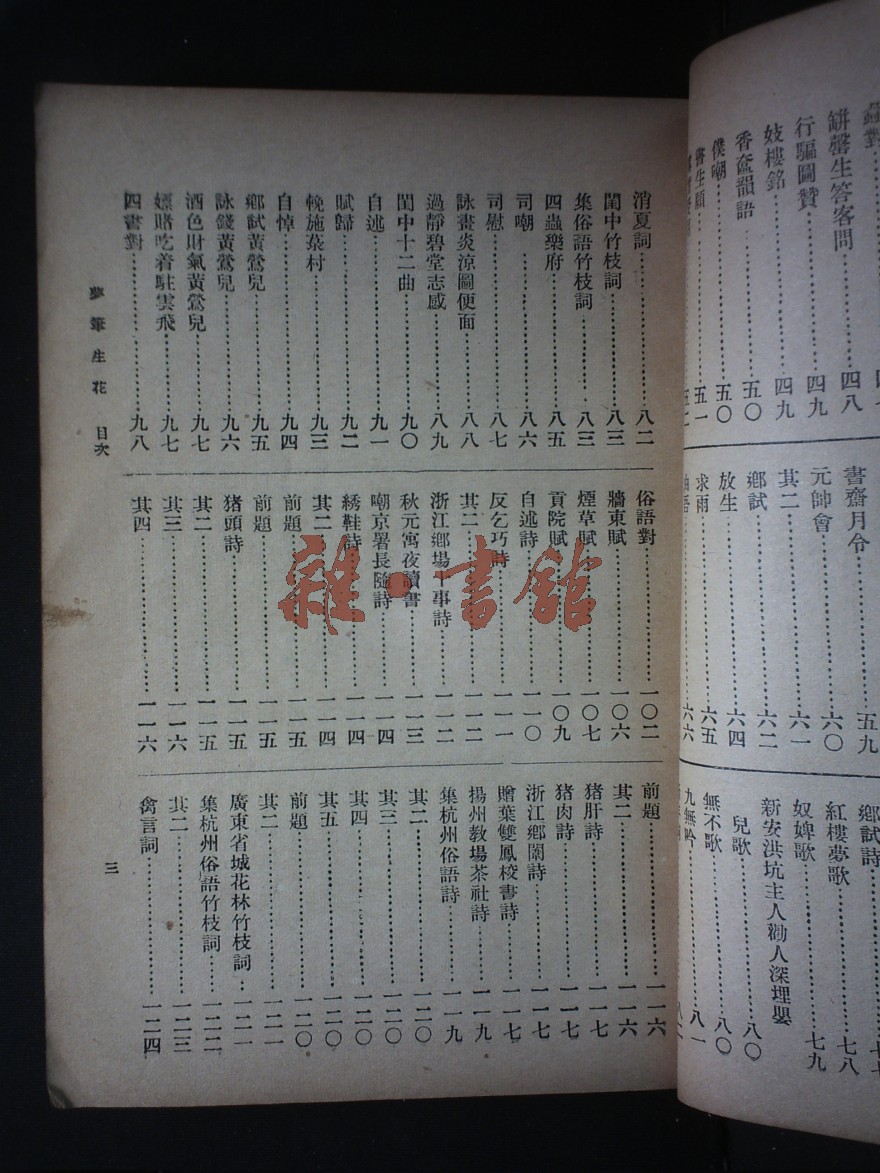 缾罄生答客問⋯⋯四八
行驅圖贊⋯⋯四九
妓樓銘⋯⋯四九
香奩韻語⋯⋯五〇
僕嘲⋯⋯五〇
五一
書齋月令⋯⋯五九
元帥會⋯⋯六〇
其二⋯⋯六一
鄉試⋯⋯六二
放生⋯⋯六四
求雨⋯⋯六五
六六
鄉試詩
紅樓夢歌⋯⋯七八
奴婢歌⋯⋯七九
新安洪坑主人勸人深埋嬰
兒歌⋯⋯八〇
無不歌⋯⋯八〇
九無吟⋯⋯八一
消夏詞⋯⋯八二
閨中竹枝詞⋯⋯八三
集俗語竹枝詞⋯⋯八三
四蟲樂府⋯⋯八五
司嘲⋯⋯八六
司慰⋯⋯八七
詠畫炎涼圖便面⋯⋯八八
過靜碧堂志感⋯⋯八九
閨中十二曲⋯⋯九〇
自述⋯⋯九一
賦歸⋯⋯九二
輓施棻村⋯⋯九三
自悼⋯⋯九四
鄉試黃鶯兒⋯⋯九五
詠錢黃鶯兒⋯⋯九六
酒色財氣黃鶯兒⋯⋯九七
嫖賭吃着駐雲飛⋯⋯九七
四書對⋯⋯九八
俗語對⋯⋯一〇二
牆東賦⋯⋯一〇六
煙草賦⋯⋯一〇七
貢院賦⋯⋯一〇九
自述詩⋯⋯一一〇
反乞巧詩⋯⋯一一一
其二⋯⋯一一二
浙江鄉場十事詩⋯⋯一一二
秋元寓夜讀書⋯⋯一一三
嘲京署長隨詩⋯⋯一一四
綉鞋詩⋯⋯一一四
其二⋯⋯一一四
前題⋯⋯一一五
前題⋯⋯一一五
猪頭詩⋯⋯一一五
其二⋯⋯一一五
其三⋯⋯一一六
其四⋯⋯一一六
前題⋯⋯一一六
其二⋯⋯一一六
猪肝詩⋯⋯一一七
猪肉詩⋯⋯一一七
浙江鄉闈詩⋯⋯一一七
贈葉雙鳳校書詩⋯⋯一一七
揚州教場茶社詩⋯⋯一一九
集杭州俗語詩⋯⋯一一九
其二⋯⋯一二〇
其三⋯⋯一二〇
其四⋯⋯一二〇
其五⋯⋯一二〇
前題⋯⋯一二〇
其二⋯⋯一二一
廣東省城花林竹枝詞⋯⋯一二一
集杭州俗語竹枝詞⋯⋯一二二
其二⋯⋯一二三
禽言詞⋯⋯一二四
夢筆生花 目次
三
雜·書館